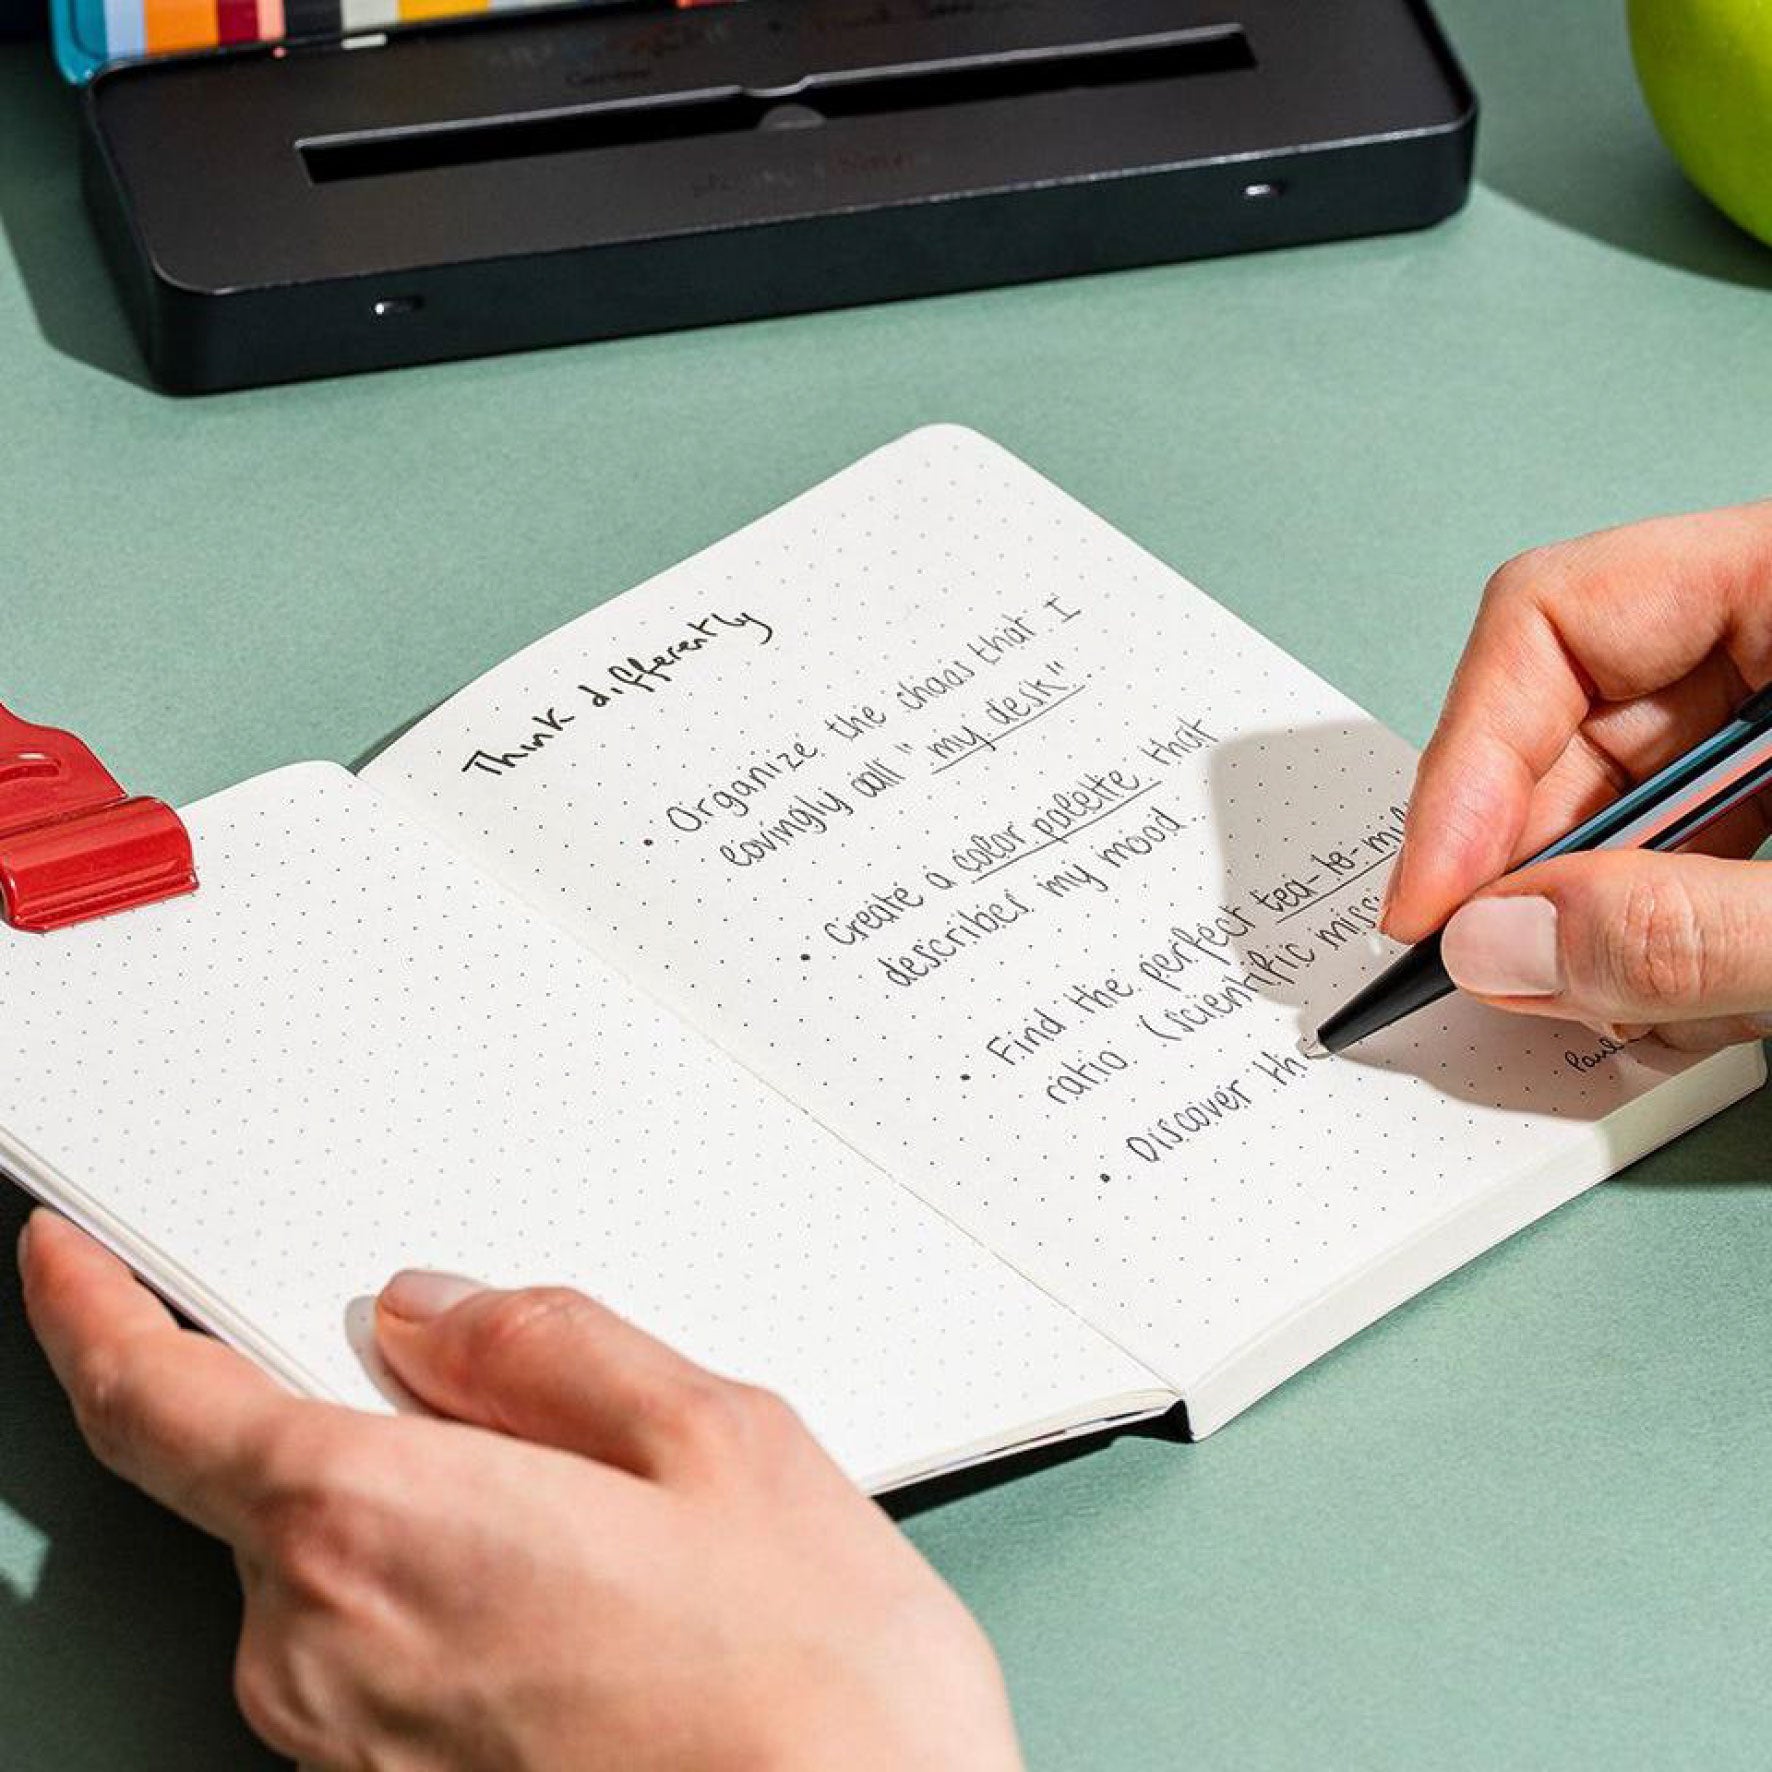 Think differently
• Organize the chaos that I
lovingly call "my desk".
• Create a color palette that
describes my mood.
• Find the perfect tea-to-
ratio. (scientific
• Discover th